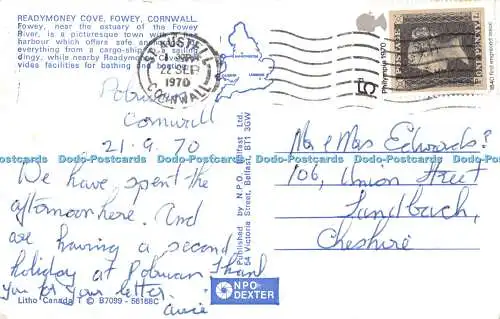 READYMONEY COVE, FOWEY, CORNWALL.
Fowey, near the estuary of the Fowey
River, is a picturesque town with a
harbour which offers safe
dingy, while nearby Readymoney
vides facilities for bathing and
ST. AUSTELL
22 SEP
1970
CORNWALL
5D
Philympia 1970
POSTAGE
Polruan
Cornwall
21.9.70
We have spent the
afternoon here. And
are having a second
holiday at Polruan Thank
you for your letter.
Mr & Mrs Edwards
106, Union Street
Sandbach,
Cheshire
Published by N.P.O. Belfast Ltd.
54 Victoria Street, Belfast, BT1 3GW
NPO
DEXTER
Litho Canada B7099 - 56168C
Dodo-Postcards Dodo-Postcards Dodo-Postcards Dodo-Postcards Dodo-Postcards